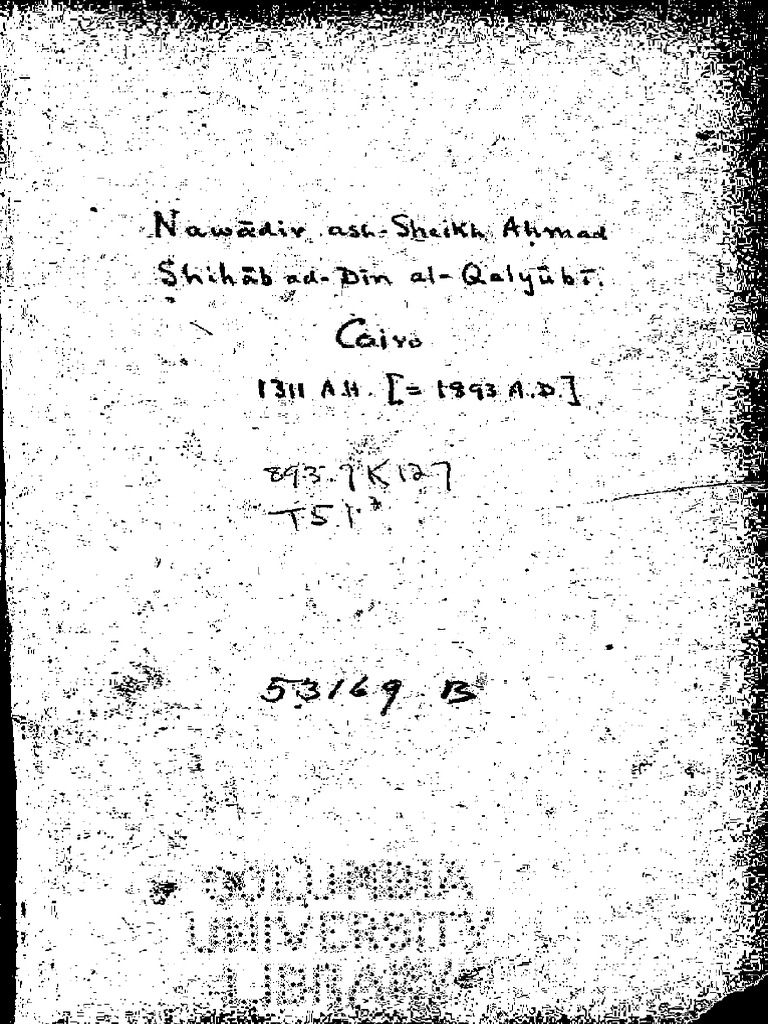 Nawādir ash-Sheikh Aḥmad
Shihāb ad-Dīn al-Qalyūbī.
Cairo
1311 A.H. [= 1893 A.D.]
893.7K127
53169 B
COLUMBIA
UNIVERSITY
LIBRARY